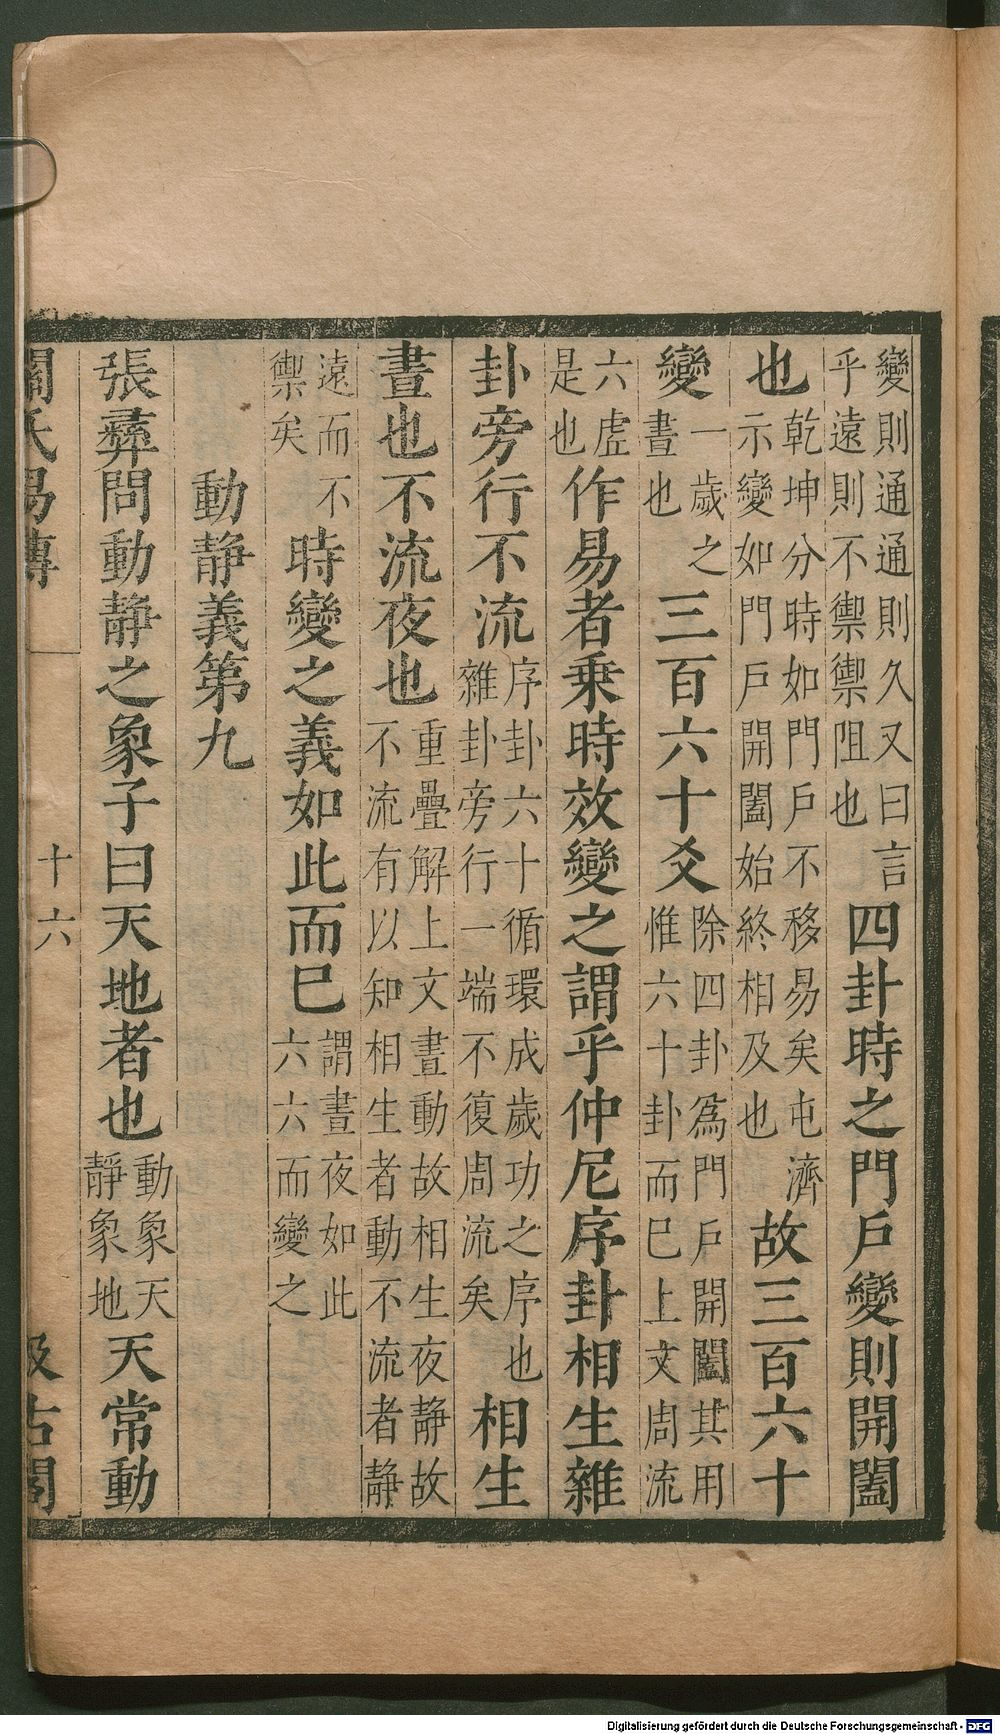 變則通通則久又曰言乎遠則不禦禦阻也四卦時之門戶變則開闔
也乾坤分時如門戶不移易矣屯濟示變如門戶開闔始終相及也故三百六十
變一歲之晝也三百六十爻除四卦爲門戶開闔其用惟六十卦而巳上文周流
六虛是也作易者乗時效變之謂乎仲尼序卦相生雜
卦旁行不流序卦六十循環成歲功之序也雜卦旁行一端不復周流矣相生
晝也不流夜也重疊解上文晝動故相生夜静故不流有以知相生者動不流者静
遠而不禦矣時變之義如此而巳謂晝夜如此六六而變之
動静義第九
張彝問動静之象子曰天地者也動象天静象地天常動
關氏易傳
十六
汲古閣
Digitalisierung gefördert durch die Deutsche Forschungsgemeinschaft - DFG